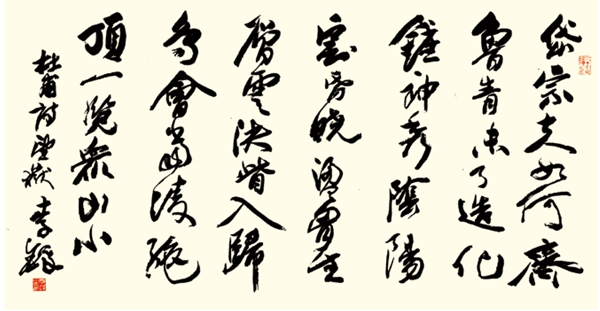 岱宗夫如何齊
魯青未了造化
鍾神秀陰陽
割昏曉蕩胸生
層雲決眥入歸
鳥會當凌絕
頂一覽衆山小
杜甫詩望嶽 李